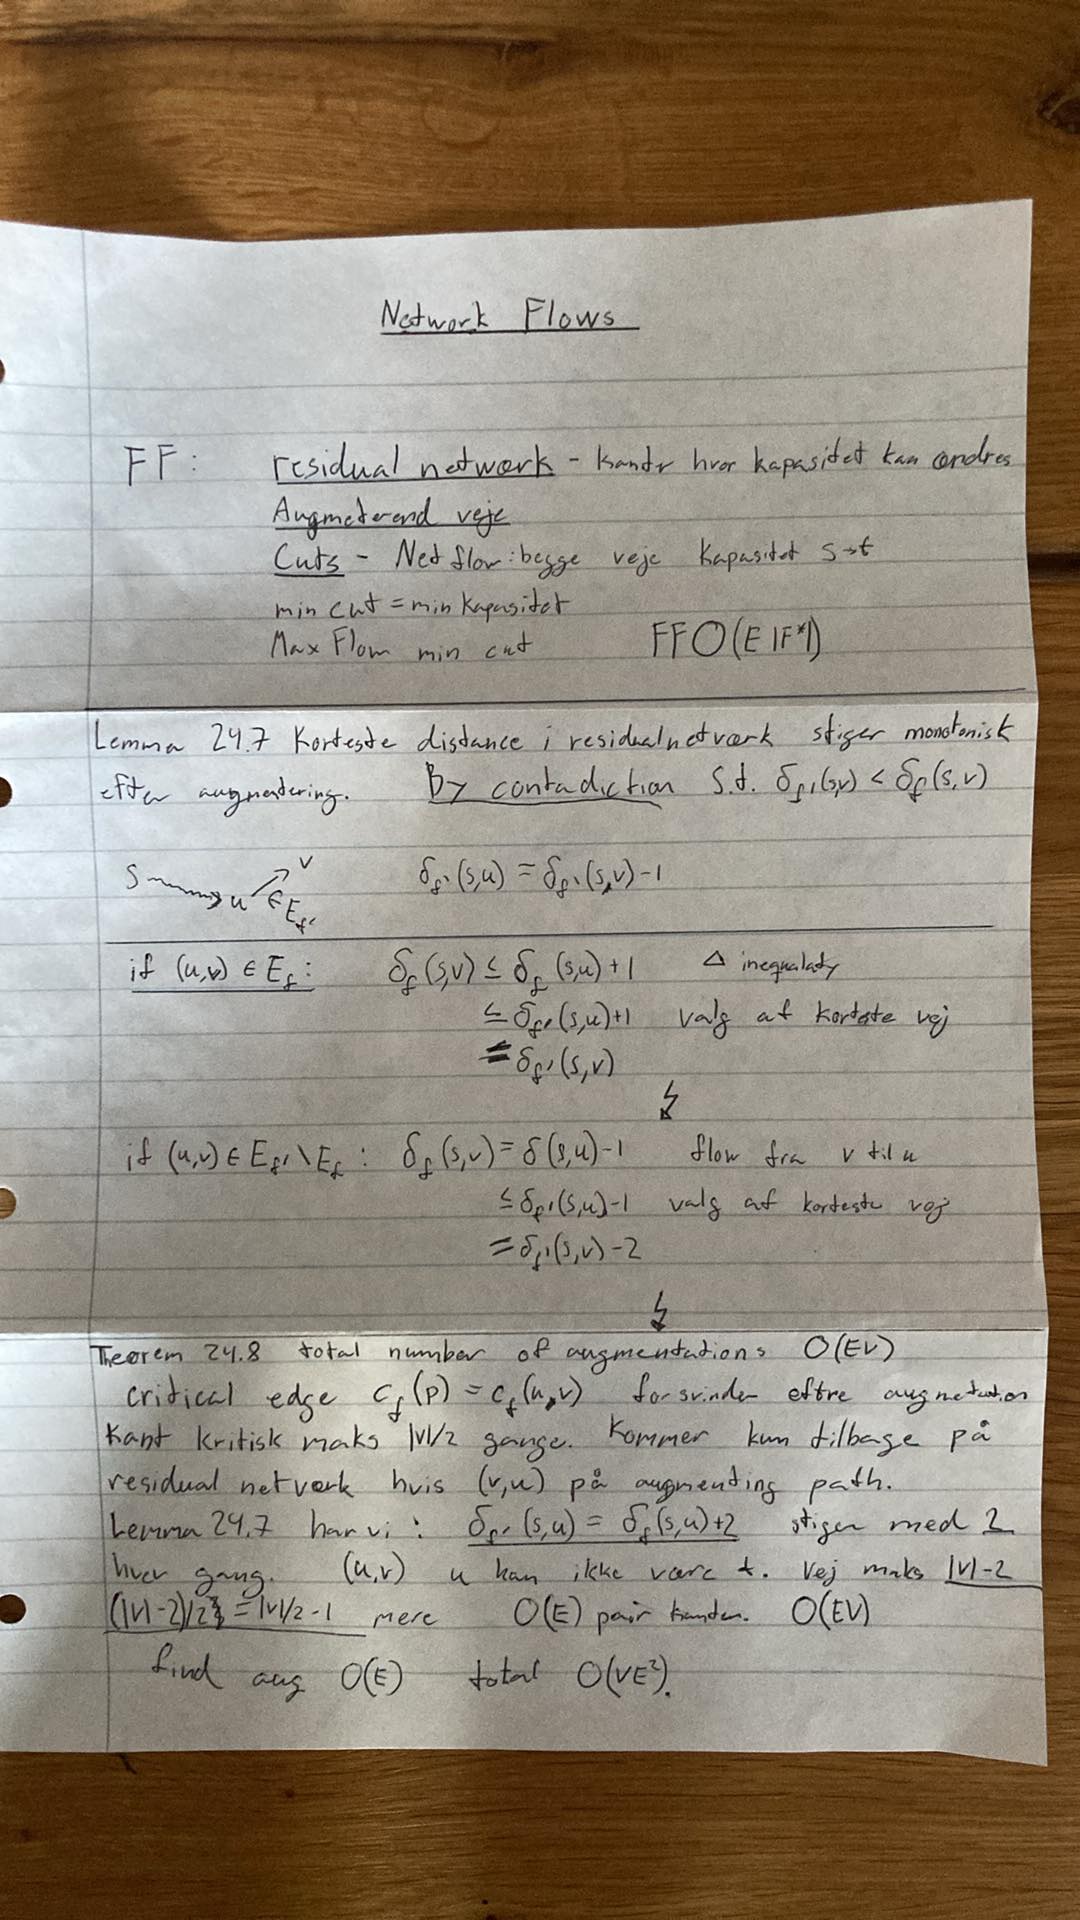 Network Flows
FF: residual network - kanter hvor kapasitet kan ændres
Augmeterend veje
Cuts - Net flow: begge veje kapasitet s→t
min cut = min kapasitet
Max Flow min cut FF O(E |F*|)
Lemma 24.7 Korteste distance i residualnetværk stiger monotonisk
efter augmentering. By contadiction S.t. δf'(s,v) < δf(s,v)
s u v ∈ Ef' δf'(s,u) = δf'(s,v)-1
if (u,v) ∈ Ef: δf(s,v) ≤ δf(s,u)+1 Δ inequalaty
≤ δf'(s,u)+1 valg af korteste vej
= δf'(s,v)
↯
if (u,v) ∈ Ef' \ Ef: δf(s,v) = δ(s,u)-1 flow fra v til u
≤ δf'(s,u)-1 valg af korteste vej
= δf'(s,v)-2
↯
Theorem 24.8 total number of augmentations O(EV)
critical edge cf(p) = cf(u,v) forsvinder eftre augmetation
Kant kritisk maks |V|/2 gange. Kommer kun tilbage på
residual netværk hvis (v,u) på augmenting path.
Lemma 24.7 har vi: δf'(s,u) = δf(s,u)+2 stiger med 2
hver gang. (u,v) u kan ikke være t. Vej maks |V|-2
(|V|-2)/2 = |V|/2-1 mere O(E) pair kanter. O(EV)
find aug O(E) total O(VE²).